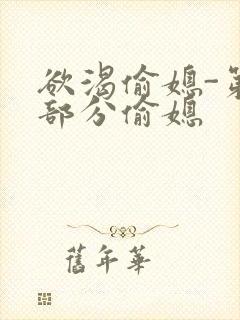 欲渴偷媳-第
部分偷媳
舊年華